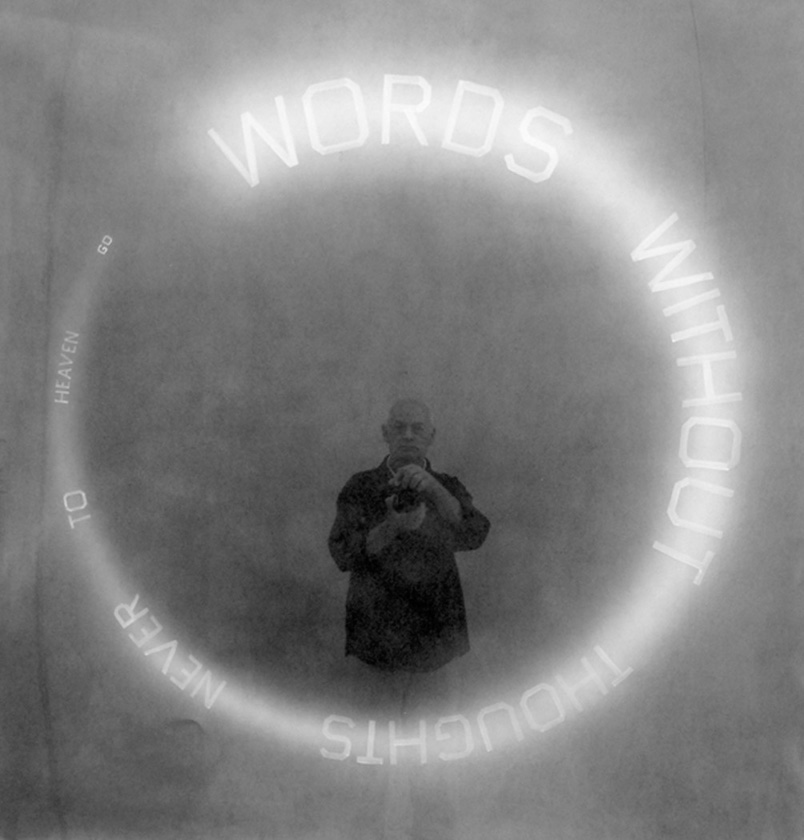 WORDS WITHOUT THOUGHTS NEVER TO HEAVEN GO